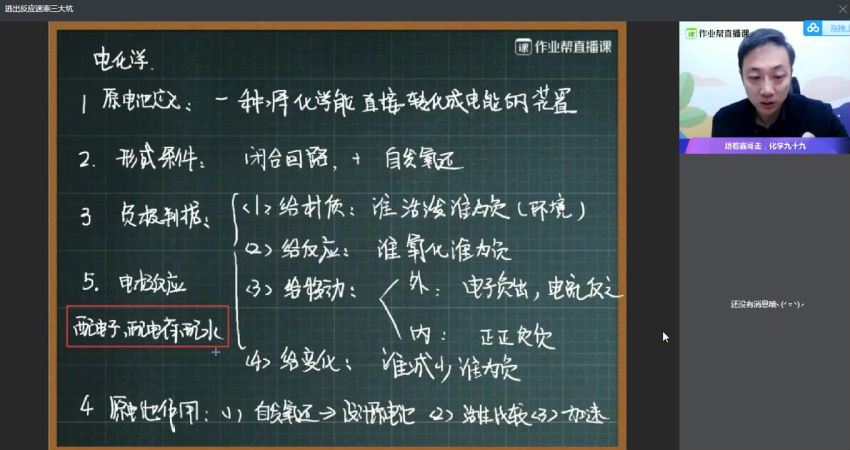 逃出反应速率三大坑
作业帮直播课
电化学.
1 原电池定义: 一种将化学能直接转化成电能的装置
2. 形成条件: 闭合回路, + 自发氧还
3 负极判据:
(1) 给材质: 谁活泼谁为负 (环境)
(2) 给反应: 谁氧化谁为负
(3) 给移动: 外: 电子负出, 电流反之
内: 正正负负
(4) 给变化: 谁减少谁为负
5. 电极反应
配电子, 配电荷, 配水
4 原电池作用: (1) 自发氧还→设计原电池 (2) 活性比较 (3) 加速
作业帮直播课
跟着鑫哥走.化学九十九
还没有消息哦